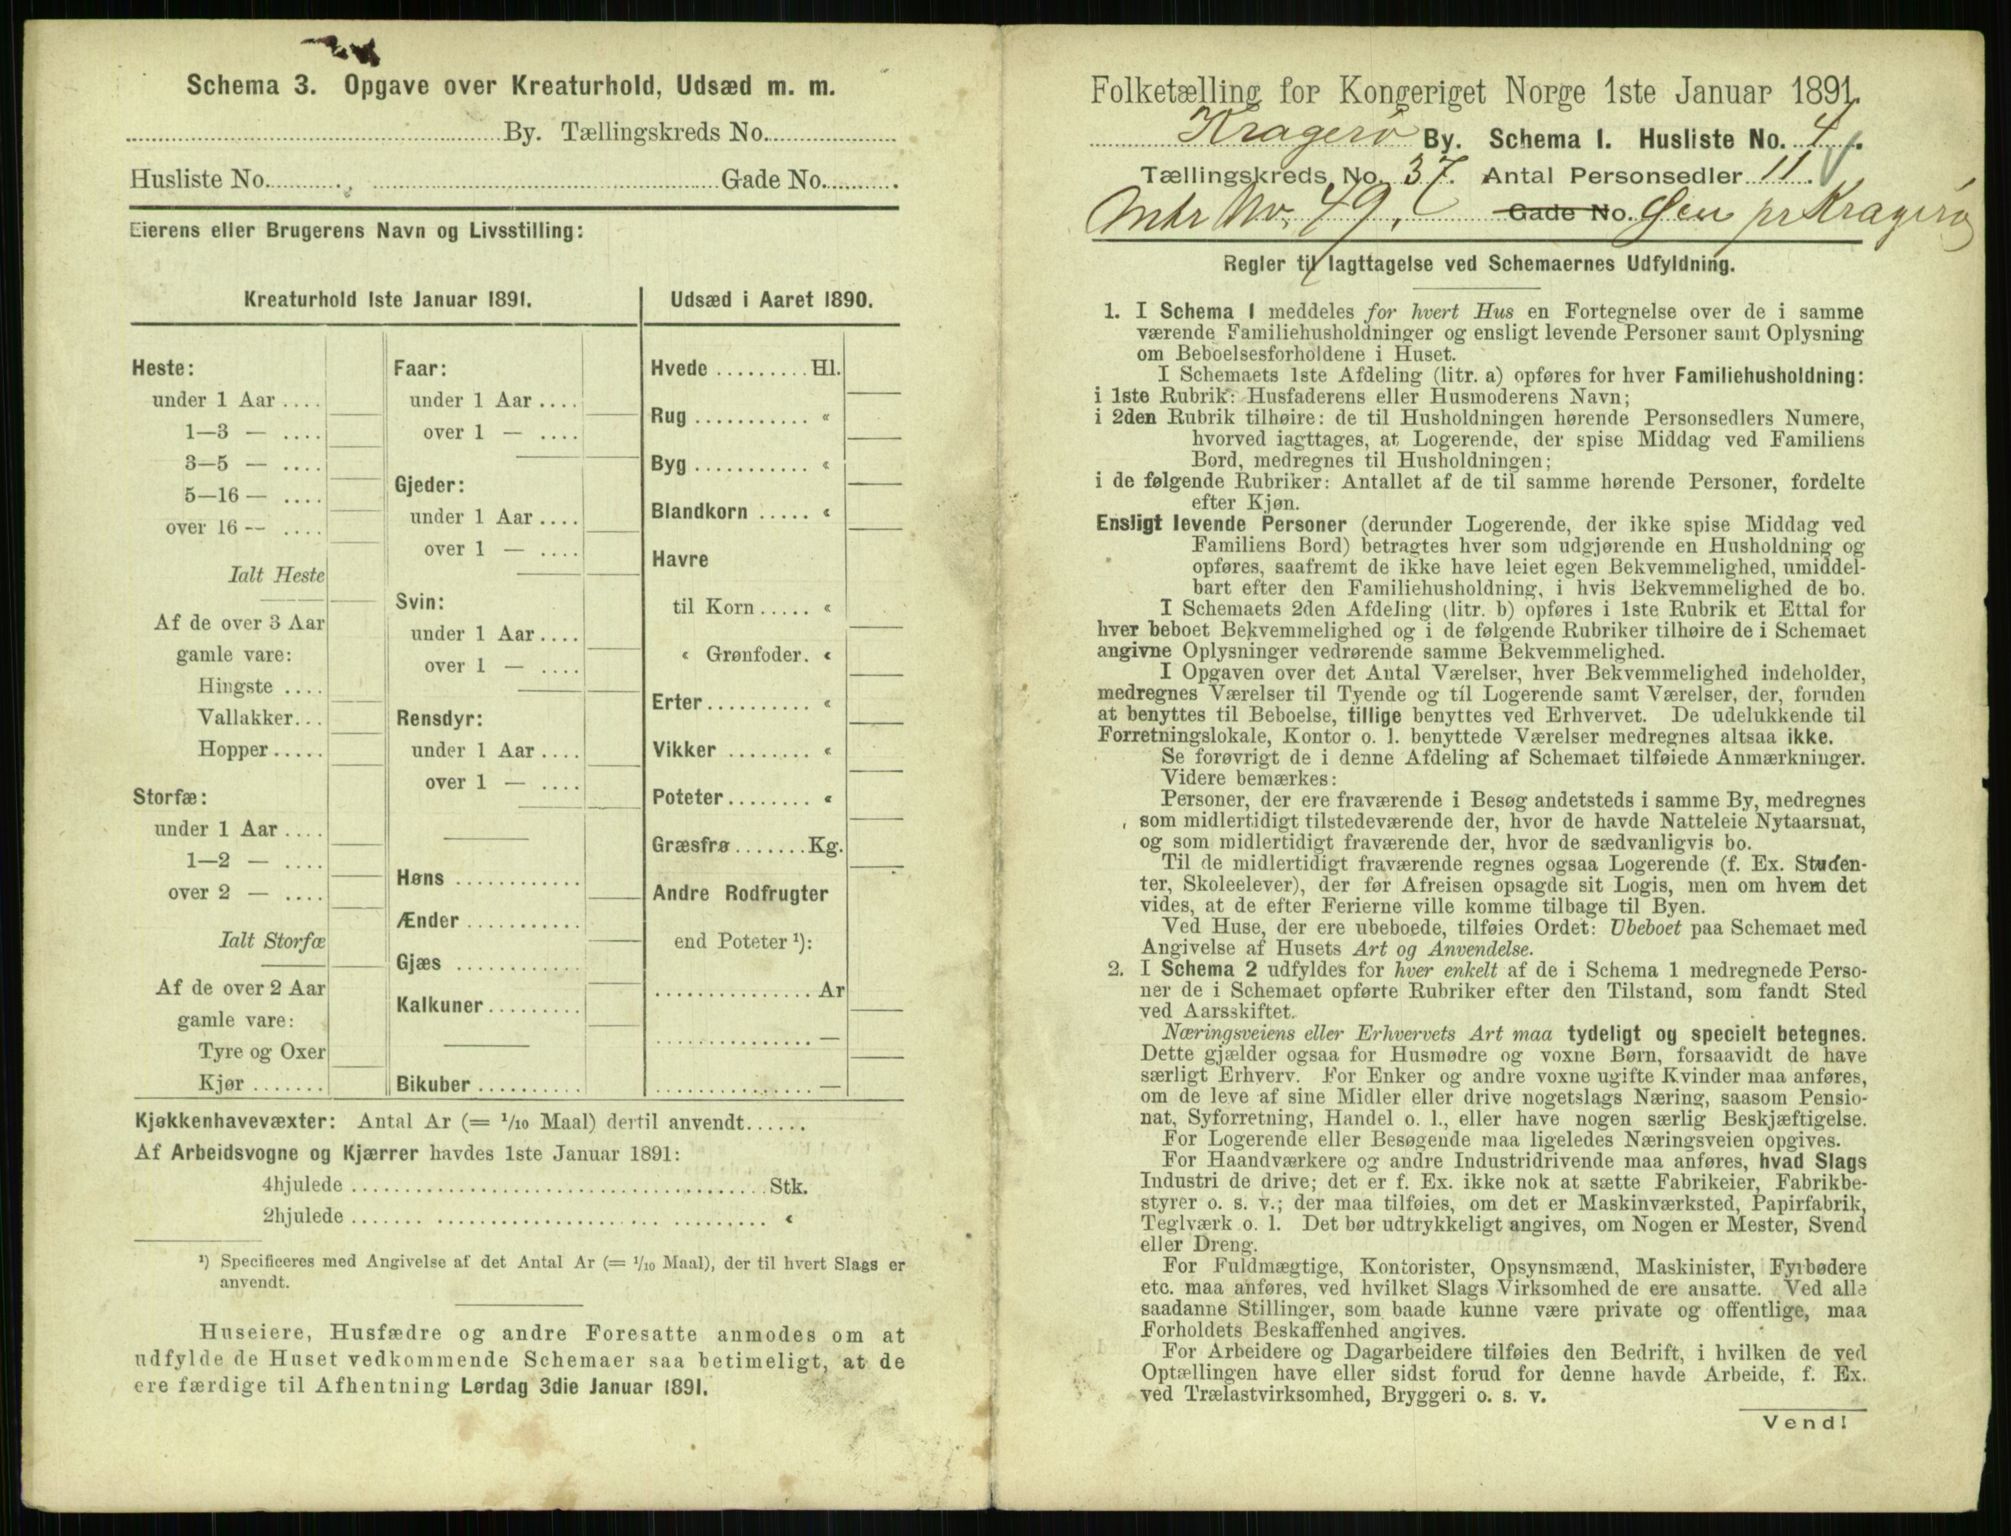 Schema 3. Opgave over Kreaturhold, Udsæd m. m.
By. Tællingskreds No.
Husliste No. Gade No.
Eierens eller Brugerens Navn og Livsstilling:
Kreaturhold 1ste Januar 1891.
Heste:
under 1 Aar ....
1—3 — ....
3—5 — ....
5—16 — ....
over 16 — ....
Ialt Heste
Af de over 3 Aar
gamle vare:
Hingste ....
Vallakker...
Hopper.....
Storfæ:
under 1 Aar ....
1—2 — ....
over 2 — ....
Ialt Storfæ
Af de over 2 Aar
gamle vare:
Tyre og Oxer
Kjør .......
Faar:
under 1 Aar ....
over 1 — ....
Gjeder:
under 1 Aar ....
over 1 — ....
Svin:
under 1 Aar ....
over 1 — ....
Rensdyr:
under 1 Aar ....
over 1 — ....
Høns ............
Ænder ...........
Gjæs ............
Kalkuner.........
Bikuber..........
Udsæd i Aaret 1890.
Hvede ......... Hl.
Rug ........... «
Byg ........... «
Blandkorn ..... «
Havre
til Korn..... «
« Grønfoder. «
Erter.......... «
Vikker ........ «
Poteter........ «
Græsfrø.......Kg.
Andre Rodfrugter
end Poteter ¹):
............... Ar
............... —
............... —
Kjøkkenhavevæxter: Antal Ar (= 1/10 Maal) dertil anvendt......
Af Arbeidsvogne og Kjærrer havdes 1ste Januar 1891:
4hjulede ........................................Stk.
2hjulede ....... ..................... ......... «
¹) Specificeres med Angivelse af det Antal Ar (= 1/10 Maal), der til hvert Slags er
anvendt.
Huseiere, Husfædre og andre Foresatte anmodes om at
udfylde de Huset vedkommende Schemaer saa betimeligt, at de
ere færdige til Afhentning Lørdag 3die Januar 1891.
Folketælling for Kongeriget Norge 1ste Januar 1891.
Kragerø By. Schema I. Husliste No. 4.
Tællingskreds No. 37. Antal Personsedler 11.
Mtr No. 49. Gade No. Øen pr Kragerø
Regler til Iagttagelse ved Schemaernes Udfyldning.
1. I Schema 1 meddeles for hvert Hus en Fortegnelse over de i samme
værende Familiehusholdninger og ensligt levende Personer samt Oplysning
om Beboelsesforholdene i Huset.
I Schemaets 1ste Afdeling (litr. a) opføres for hver Familiehusholdning:
i 1ste Rubrik: Husfaderens eller Husmoderens Navn;
i 2den Rubrik tilhøire: de til Husholdningen hørende Personsedlers Numere,
hvorved iagttages, at Logerende, der spise Middag ved Familiens
Bord, medregnes til Husholdningen;
i de følgende Rubriker: Antallet af de til samme hørende Personer, fordelte
efter Kjøn.
Ensligt levende Personer (derunder Logerende, der ikke spise Middag ved
Familiens Bord) betragtes hver som udgjørende en Husholdning og
opføres, saafremt de ikke have leiet egen Bekvemmelighed, umiddel-
bart efter den Familiehusholdning, i hvis Bekvemmelighed de bo.
I Schemaets 2den Afdeling (litr. b) opføres i 1ste Rubrik et Ettal for
hver beboet Bekvemmelighed og i de følgende Rubriker tilhøire de i Schemaet
angivne Oplysninger vedrørende samme Bekvemmelighed.
I Opgaven over det Antal Værelser, hver Bekvemmelighed indeholder,
medregnes Værelser til Tyende og til Logerende samt Værelser, der, foruden
at benyttes til Beboelse, tillige benyttes ved Erhvervet. De udelukkende til
Forretningslokale, Kontor o. l. benyttede Værelser medregnes altsaa ikke.
Se forøvrigt de i denne Afdeling af Schemaet tilføiede Anmærkninger.
Videre bemærkes:
Personer, der ere fraværende i Besøg andetsteds i samme By, medregnes
som midlertidigt tilstedeværende der, hvor de havde Natteleie Nytaarsnat,
og som midlertidigt fraværende der, hvor de sædvanligvis bo.
Til de midlertidigt fraværende regnes ogsaa Logerende (f. Ex. Studen-
ter, Skoleelever), der før Afreisen opsagde sit Logis, men om hvem det
vides, at de efter Ferierne ville komme tilbage til Byen.
Ved Huse, der ere ubeboede, tilføies Ordet: Ubeboet paa Schemaet med
Angivelse af Husets Art og Anvendelse.
2. I Schema 2 udfyldes for hver enkelt af de i Schema 1 medregnede Perso-
ner de i Schemaet opførte Rubriker efter den Tilstand, som fandt Sted
ved Aarsskiftet.
Næringsveiens eller Erhvervets Art maa tydeligt og specielt betegnes.
Dette gjælder ogsaa for Husmødre og voxne Børn, forsaavidt de have
særligt Erhverv. For Enker og andre voxne ugifte Kvinder maa anføres,
om de leve af sine Midler eller drive nogetslags Næring, saasom Pensio-
nat, Syforretning, Handel o. l., eller have nogen særlig Beskjæftigelse.
For Logerende eller Besøgende maa ligeledes Næringsveien opgives.
For Haandværkere og andre Industridrivende maa anføres, hvad Slags
Industri de drive; det er f. Ex. ikke nok at sætte Fabrikeier, Fabrikbe-
styrer o. s. v.; der maa tilføies, om det er Maskinværksted, Papirfabrik,
Teglværk o. l. Det bør udtrykkeligt angives, om Nogen er Mester, Svend
eller Dreng.
For Fuldmægtige, Kontorister, Opsynsmænd, Maskinister, Fyrbødere
etc. maa anføres, ved hvilket Slags Virksomhed de ere ansatte. Ved alle
saadanne Stillinger, som baade kunne være private og offentlige, maa
Forholdets Beskaffenhed angives.
For Arbeidere og Dagarbeidere tilføies den Bedrift, i hvilken de ved
Optællingen have eller sidst forud for denne havde Arbeide, f. Ex.
ved Trælastvirksomhed, Bryggeri o. s. v.
Vend!